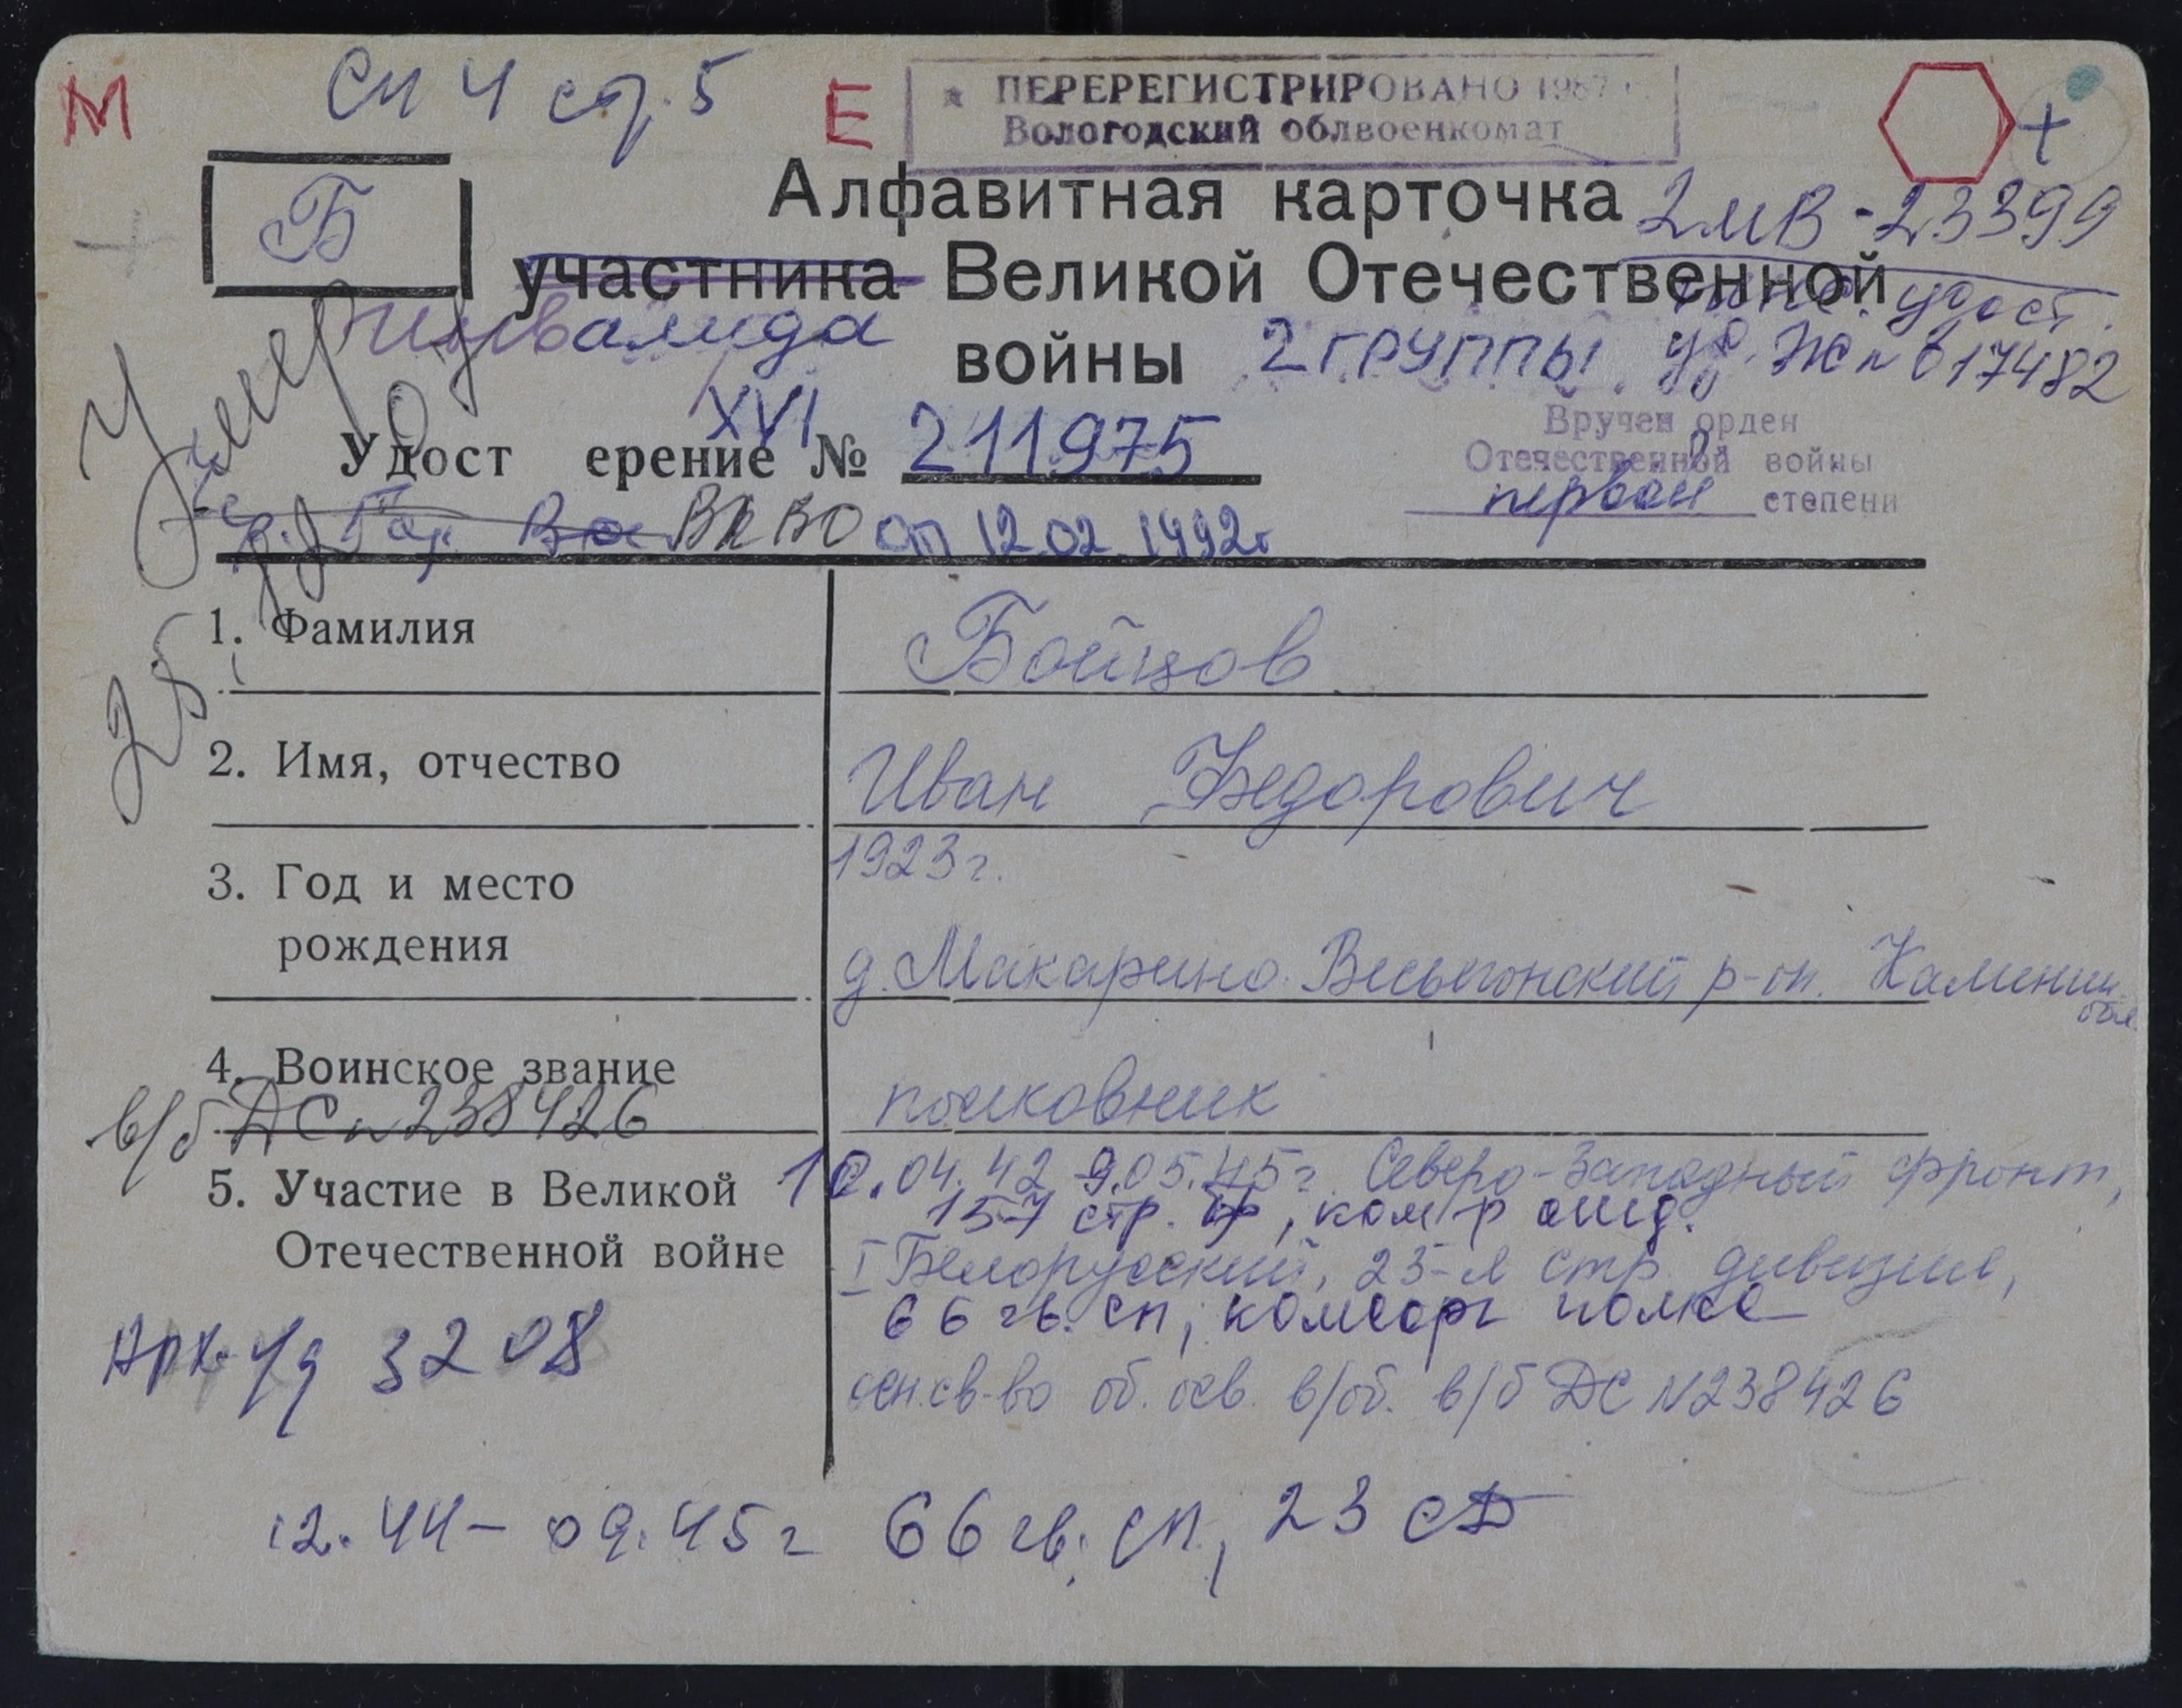 М
сп 4 стр. 5
Е
ПЕРЕРЕГИСТРИРОВАНО 1987 г.
Вологодский облвоенкомат
+
Б
Алфавитная карточка
2мв-23399
участника Великой Отечественной
удост.
инвалида
войны
2 группы
уд. Ж № 017482
Умер
XVI
Удост ерение № 211975
Вручен орден
Отечественной войны
первой степени
ВКВО от 12.02.1992г
25
1. Фамилия
Бойцов
2. Имя, отчество
Иван Федорович
3. Год и место
рождения
1923г.
д. Макарино Весьегонский р-он. Калинин.
обл.
4. Воинское звание
полковник
в/б ДС № 238426
5. Участие в Великой
Отечественной войне
10.04.42 9.05.45г. Северо-Западный фронт,
157 стр. бр, ком-р отд.
I Белорусский, 23-я стр. дивизия,
66 гв. сп, комсорг полка
осн. св-во об. осв. в/об. в/б ДС №238426
Арх. уд 3208
12.44- 09.45г 66 гв. сп, 23 сд